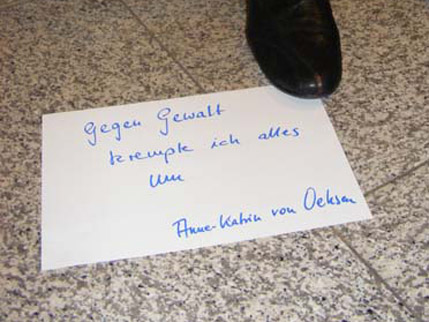 Gegen Gewalt
kremple ich alles
um
Anne-Katrin von Oehsen